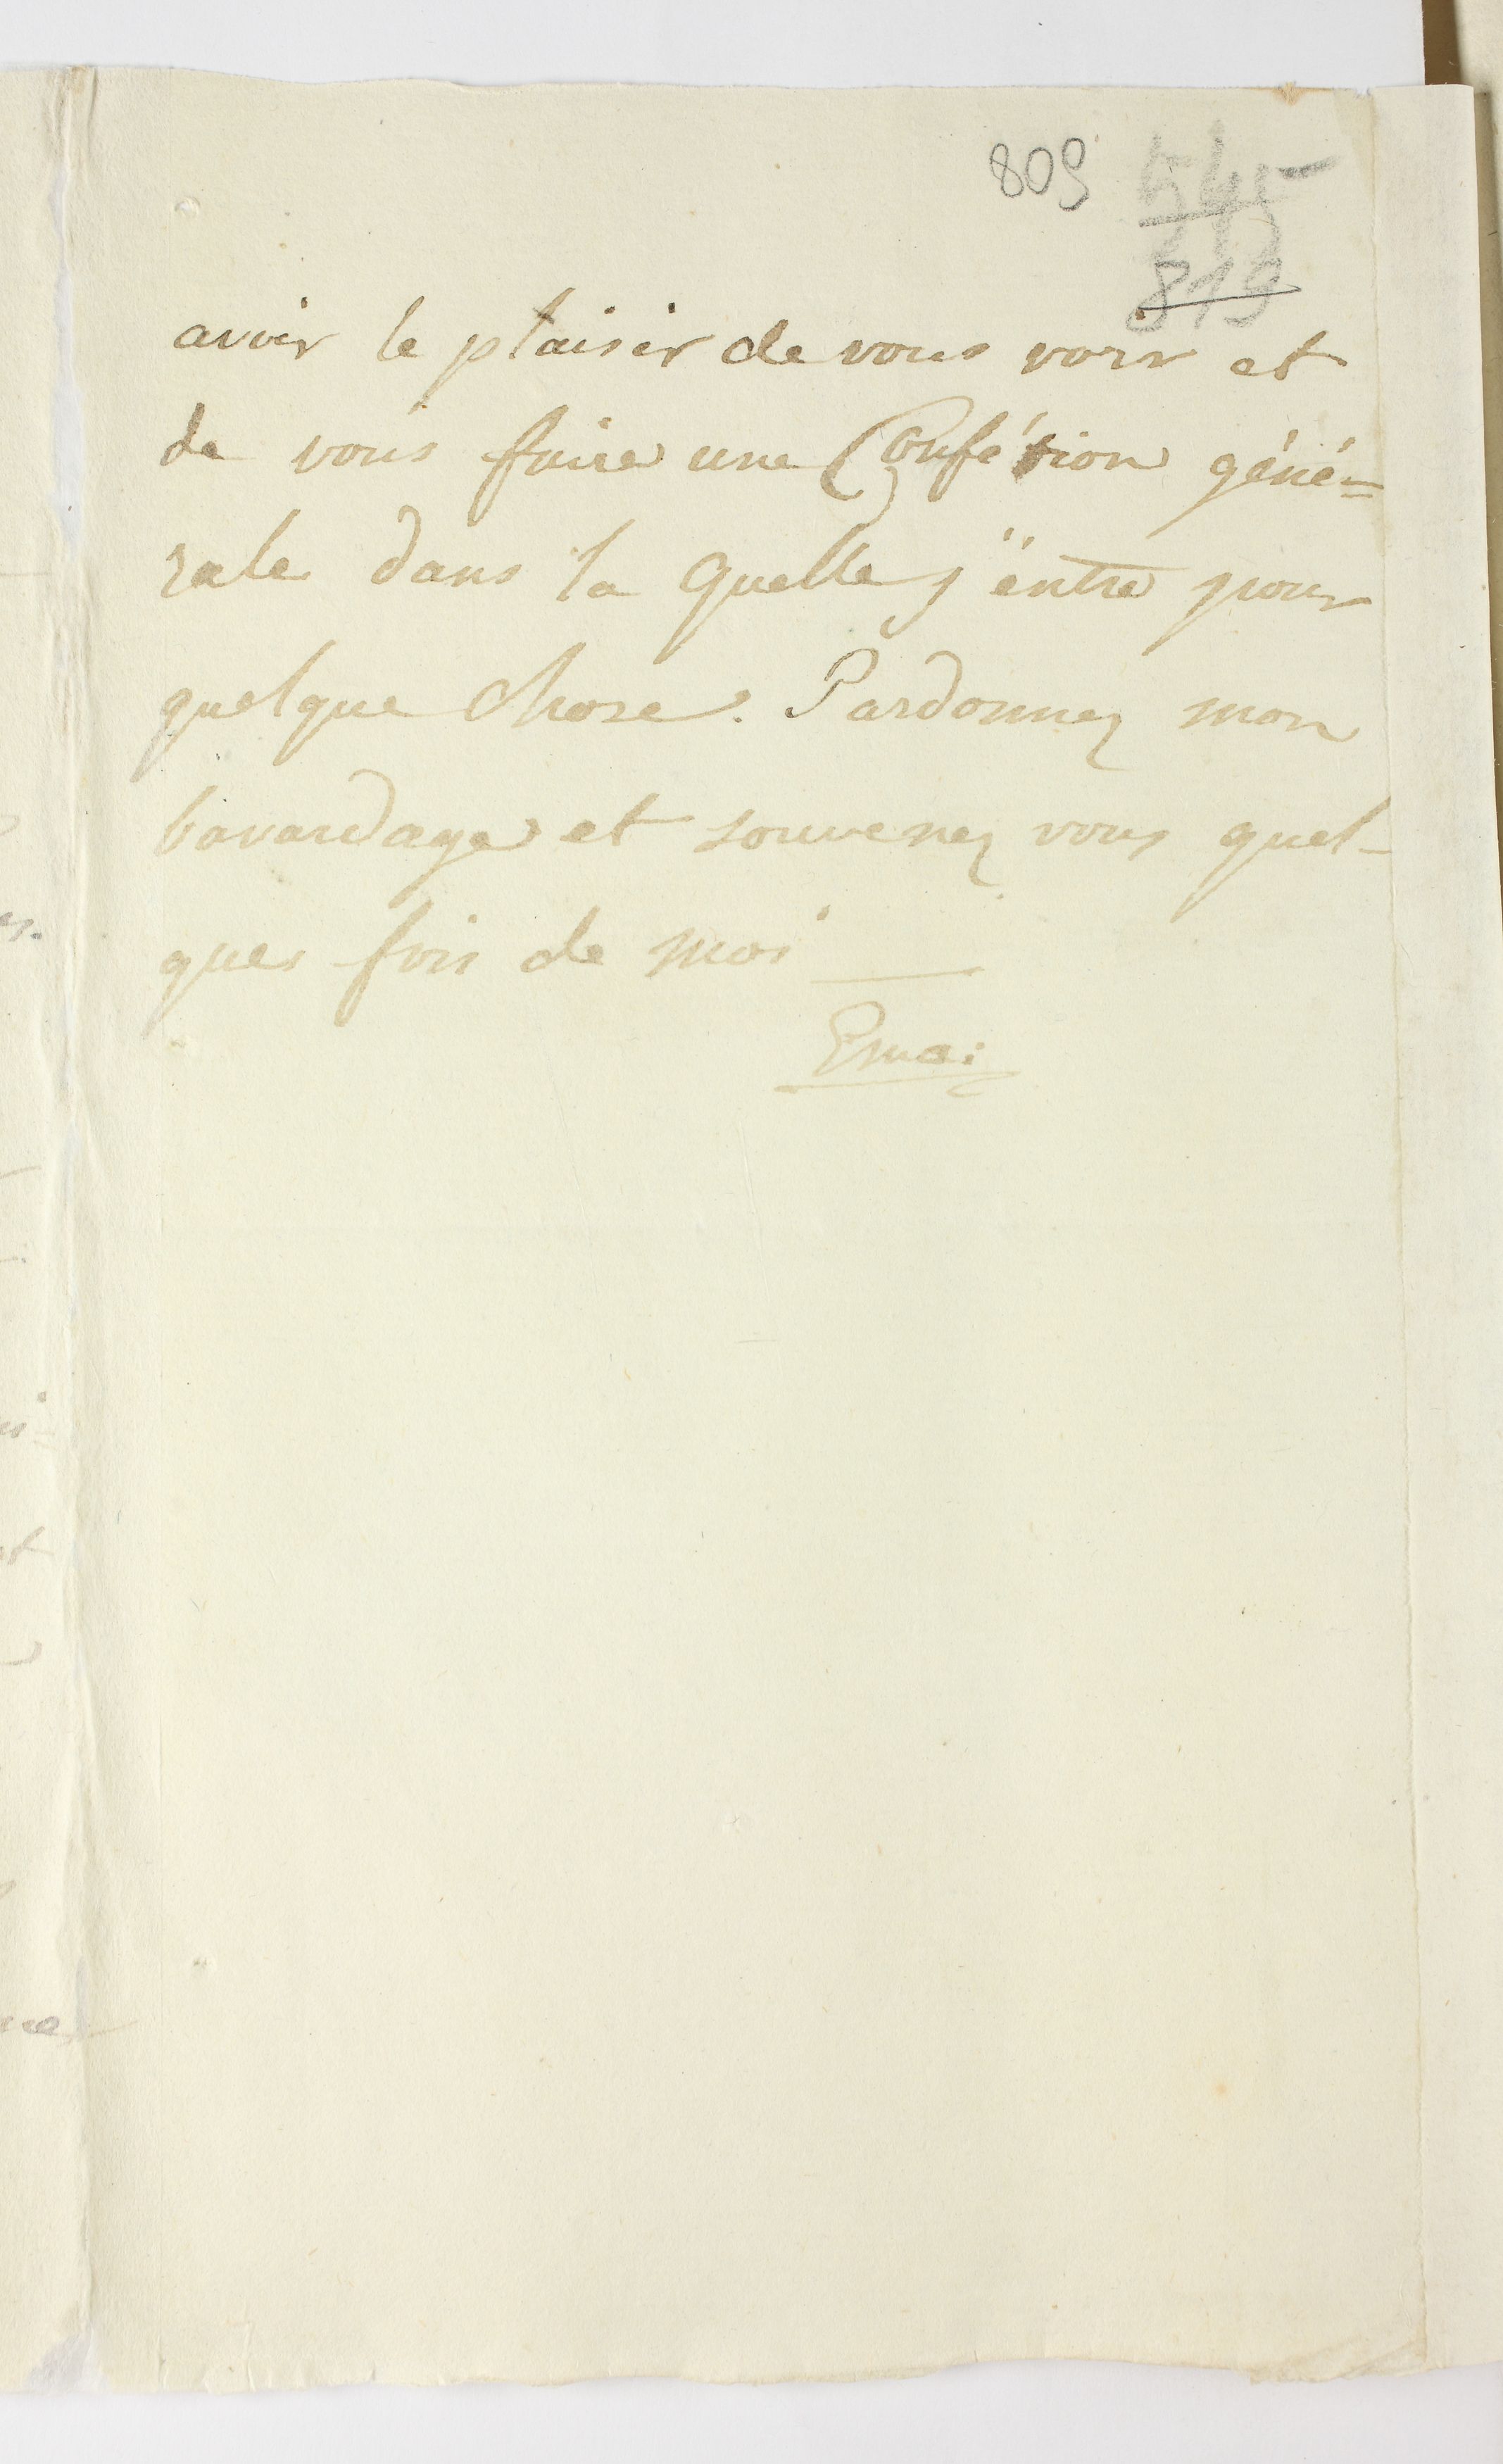 809
545
819
avoir le plaisir de vous voir et
de vous faire une Confésion géné=
rale dans la quelle j'entre pour
quelque chose. Pardonnez mon
bavardage et souvenez vous quel-
ques fois de moi